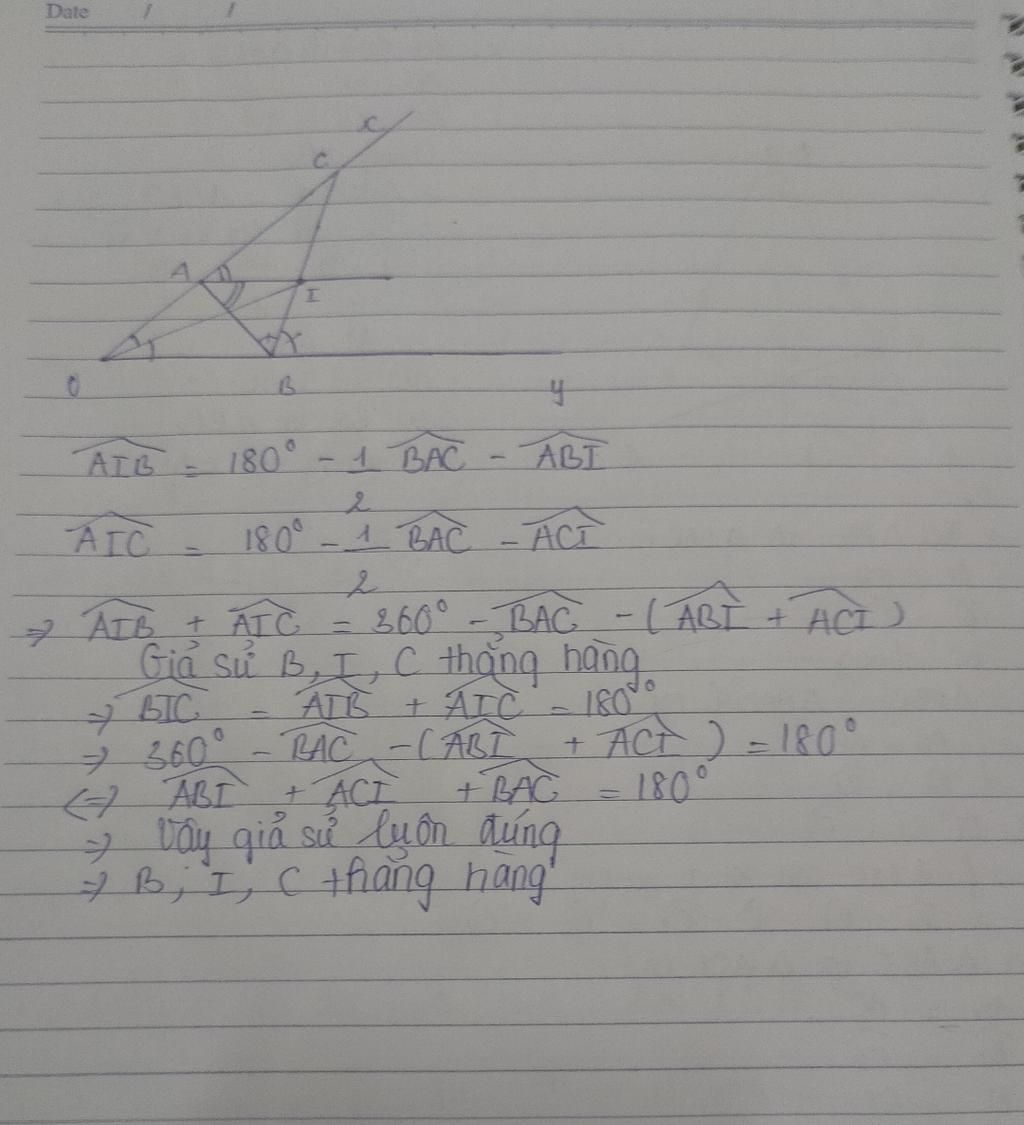 Date / /
x
C
A
I
O B y
AIB = 180° - 1/2 BAC - ABI
AIC = 180° - 1/2 BAC - ACI
⇒ AIB + AIC = 360° - BAC - (ABI + ACI)
Giả sử B, I, C thẳng hàng
⇒ BIC = AIB + AIC = 180°
⇒ 360° - BAC - (ABI + ACI) = 180°
<=> ABI + ACI + BAC = 180°
⇒ Vậy giả sử luôn đúng
⇒ B, I, C thẳng hàng